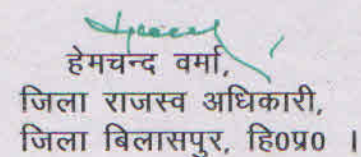 हेमचन्द वर्मा,
जिला राजस्व अधिकारी,
जिला बिलासपुर, हि0प्र0 ।